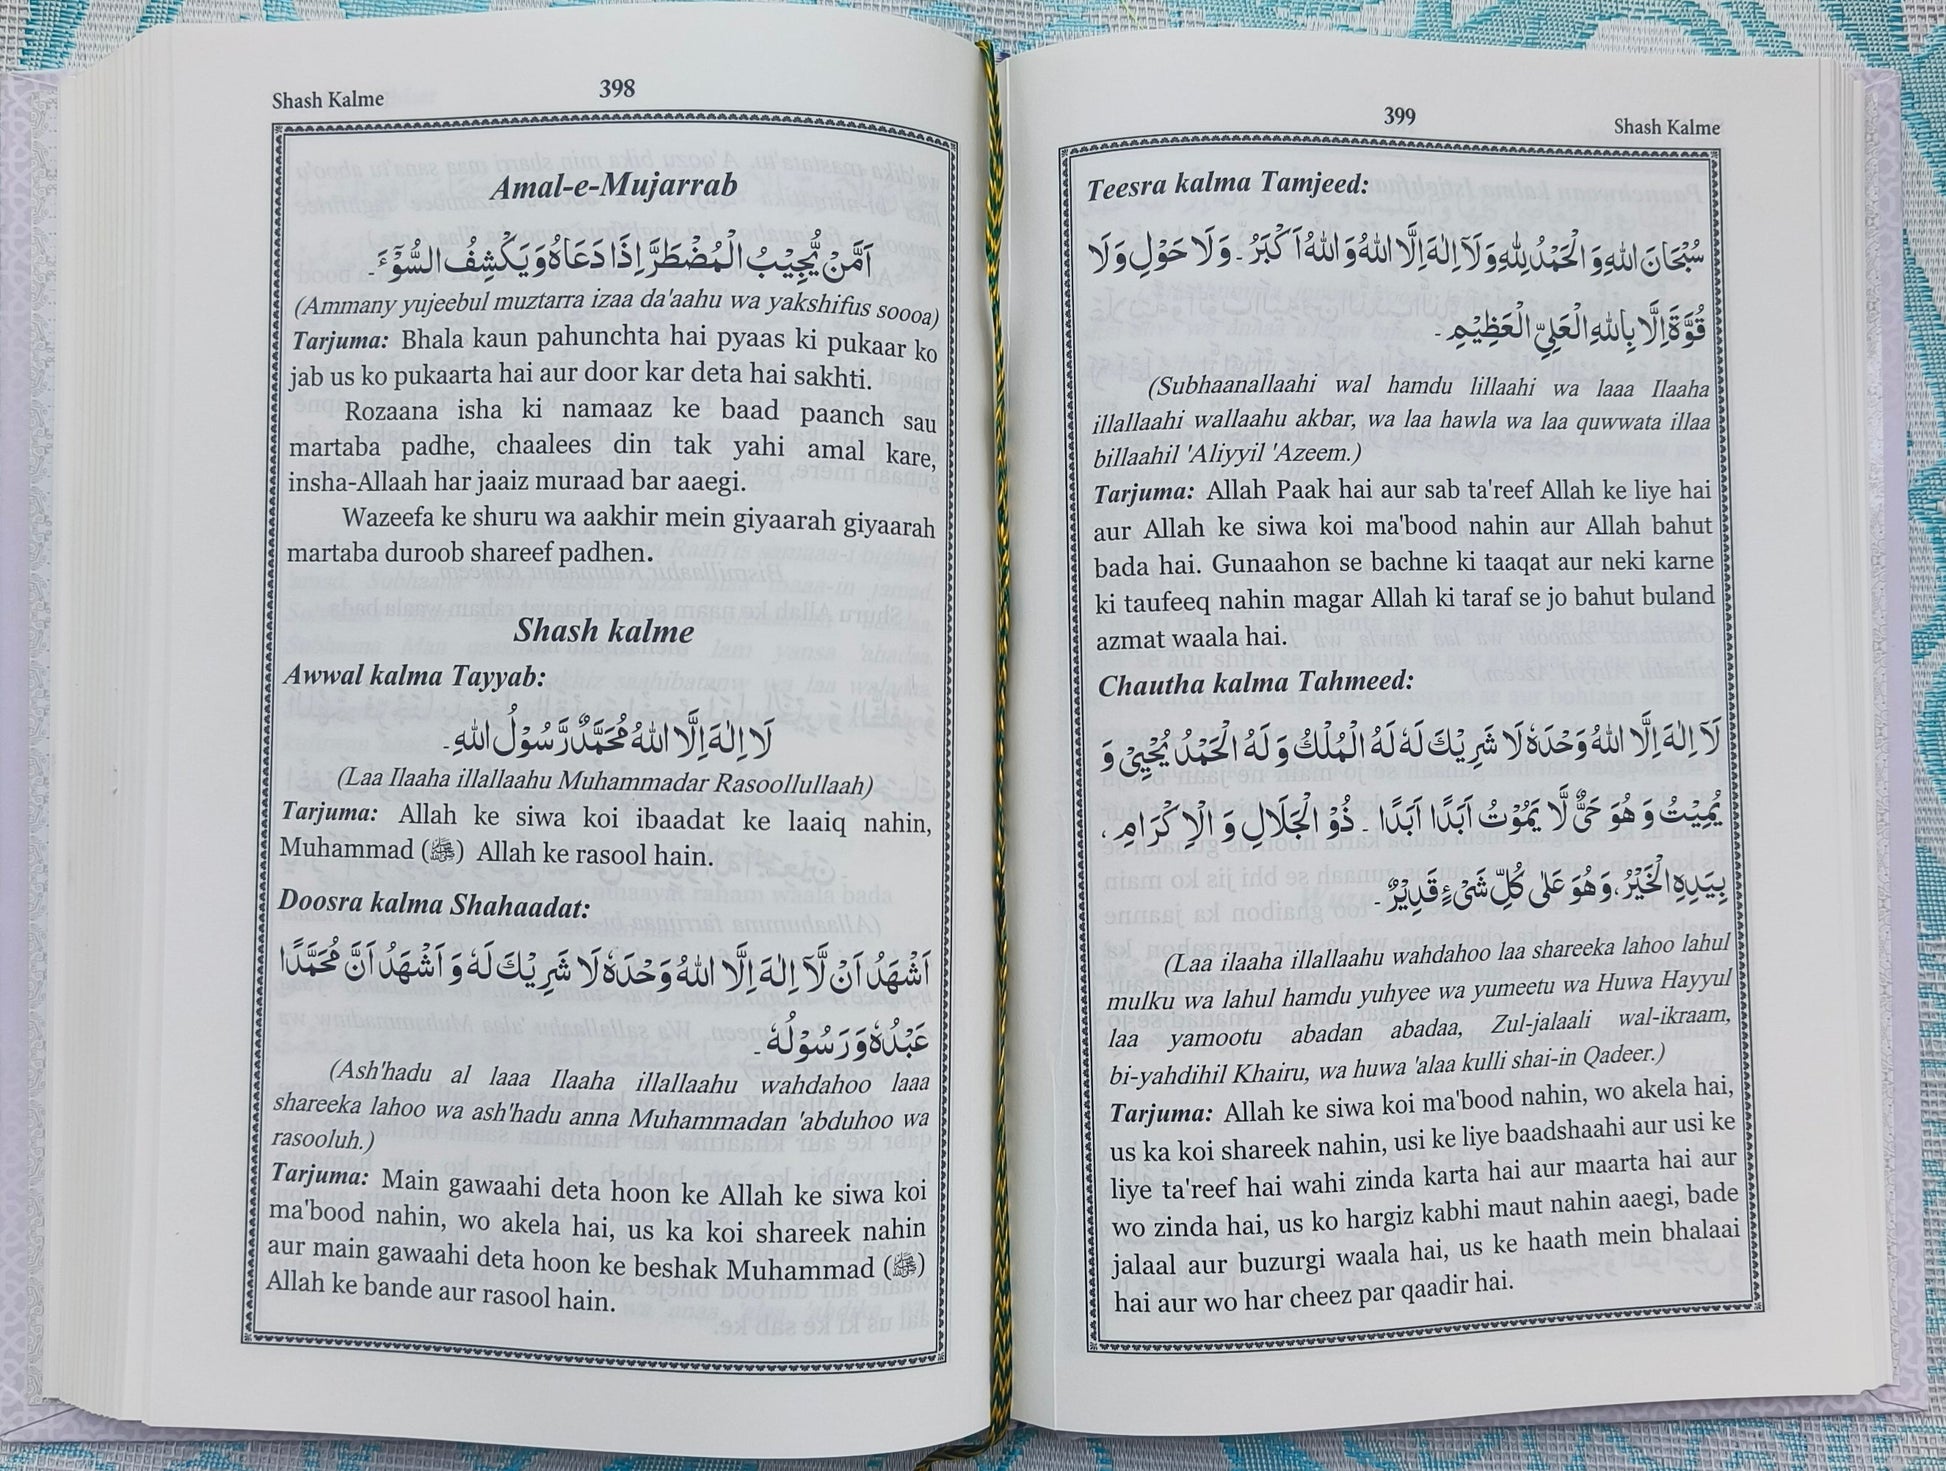 Shash Kalme
398
Amal-e-Mujarrab
اَمَّنْ يُّجِيْبُ الْمُضْطَرَّ اِذَا دَعَاهُ وَيَكْشِفُ السُّوْٓءَ۔
(Ammany yujeebul muztarra izaa da'aahu wa yakshifus soooa)
Tarjuma: Bhala kaun pahunchta hai pyaas ki pukaar ko
jab us ko pukaarta hai aur door kar deta hai sakhti.
Rozaana isha ki namaaz ke baad paanch sau
martaba padhe, chaalees din tak yahi amal kare,
insha-Allaah har jaaiz muraad bar aaegi.
Wazeefa ke shuru wa aakhir mein giyaarah giyaarah
martaba duroob shareef padhen.
Shash kalme
Awwal kalma Tayyab:
لَا اِلٰهَ اِلَّا اللهُ مُحَمَّدٌ رَّسُوْلُ اللهِ۔
(Laa Ilaaha illallaahu Muhammadar Rasoollullaah)
Tarjuma: Allah ke siwa koi ibaadat ke laaiq nahin,
Muhammad (ﷺ) Allah ke rasool hain.
Doosra kalma Shahaadat:
اَشْهَدُ اَنْ لَّآ اِلٰهَ اِلَّا اللهُ وَحْدَهٗ لَا شَرِيْكَ لَهٗ وَ اَشْهَدُ اَنَّ مُحَمَّدًا
عَبْدُهٗ وَ رَسُوْلُهٗ۔
(Ash'hadu al laaa Ilaaha illallaahu wahdahoo laaa
shareeka lahoo wa ash'hadu anna Muhammadan 'abduhoo wa
rasooluh.)
Tarjuma: Main gawaahi deta hoon ke Allah ke siwa koi
ma'bood nahin, wo akela hai, us ka koi shareek nahin
aur main gawaahi deta hoon ke beshak Muhammad (ﷺ)
Allah ke bande aur rasool hain.
399
Shash Kalme
Teesra kalma Tamjeed:
سُبْحَانَ اللهِ وَ الْحَمْدُ لِلهِ وَلَآ اِلٰهَ اِلَّا اللهُ وَ اللهُ اَكْبَرُ۔ وَلَا حَوْلِ وَلَا
قُوَّةَ اِلَّا بِاللهِ الْعَلِيِّ الْعَظِيْمِ۔
(Subhaanallaahi wal hamdu lillaahi wa laaa Ilaaha
illallaahi wallaahu akbar, wa laa hawla wa laa quwwata illaa
billaahil 'Aliyyil 'Azeem.)
Tarjuma: Allah Paak hai aur sab ta'reef Allah ke liye hai
aur Allah ke siwa koi ma'bood nahin aur Allah bahut
bada hai. Gunaahon se bachne ki taaqat aur neki karne
ki taufeeq nahin magar Allah ki taraf se jo bahut buland
azmat waala hai.
Chautha kalma Tahmeed:
لَآ اِلٰهَ اِلَّا اللهُ وَحْدَهٗ لَا شَرِيْكَ لَهٗ لَهُ الْمُلْكُ وَ لَهُ الْحَمْدُ يُحْيِىْ وَ
يُمِيْتُ وَ هُوَ حَىٌّ لَّا يَمُوْتُ اَبَدًا اَبَدًا۔ ذُو الْجَلَالِ وَ الْاِكْرَامِ،
بِيَدِهِ الْخَيْرُ، وَهُوَ عَلٰى كُلِّ شَىْءٍ قَدِيْرٌ۔
(Laa ilaaha illallaahu wahdahoo laa shareeka lahoo lahul
mulku wa lahul hamdu yuhyee wa yumeetu wa Huwa Hayyul
laa yamootu abadan abadaa, Zul-jalaali wal-ikraam,
bi-yahdihil Khairu, wa huwa 'alaa kulli shai-in Qadeer.)
Tarjuma: Allah ke siwa koi ma'bood nahin, wo akela hai,
us ka koi shareek nahin, usi ke liye baadshaahi aur usi ke
liye ta'reef hai wahi zinda karta hai aur maarta hai aur
wo zinda hai, us ko hargiz kabhi maut nahin aaegi, bade
jalaal aur buzurgi waala hai, us ke haath mein bhalaai
hai aur wo har cheez par qaadir hai.